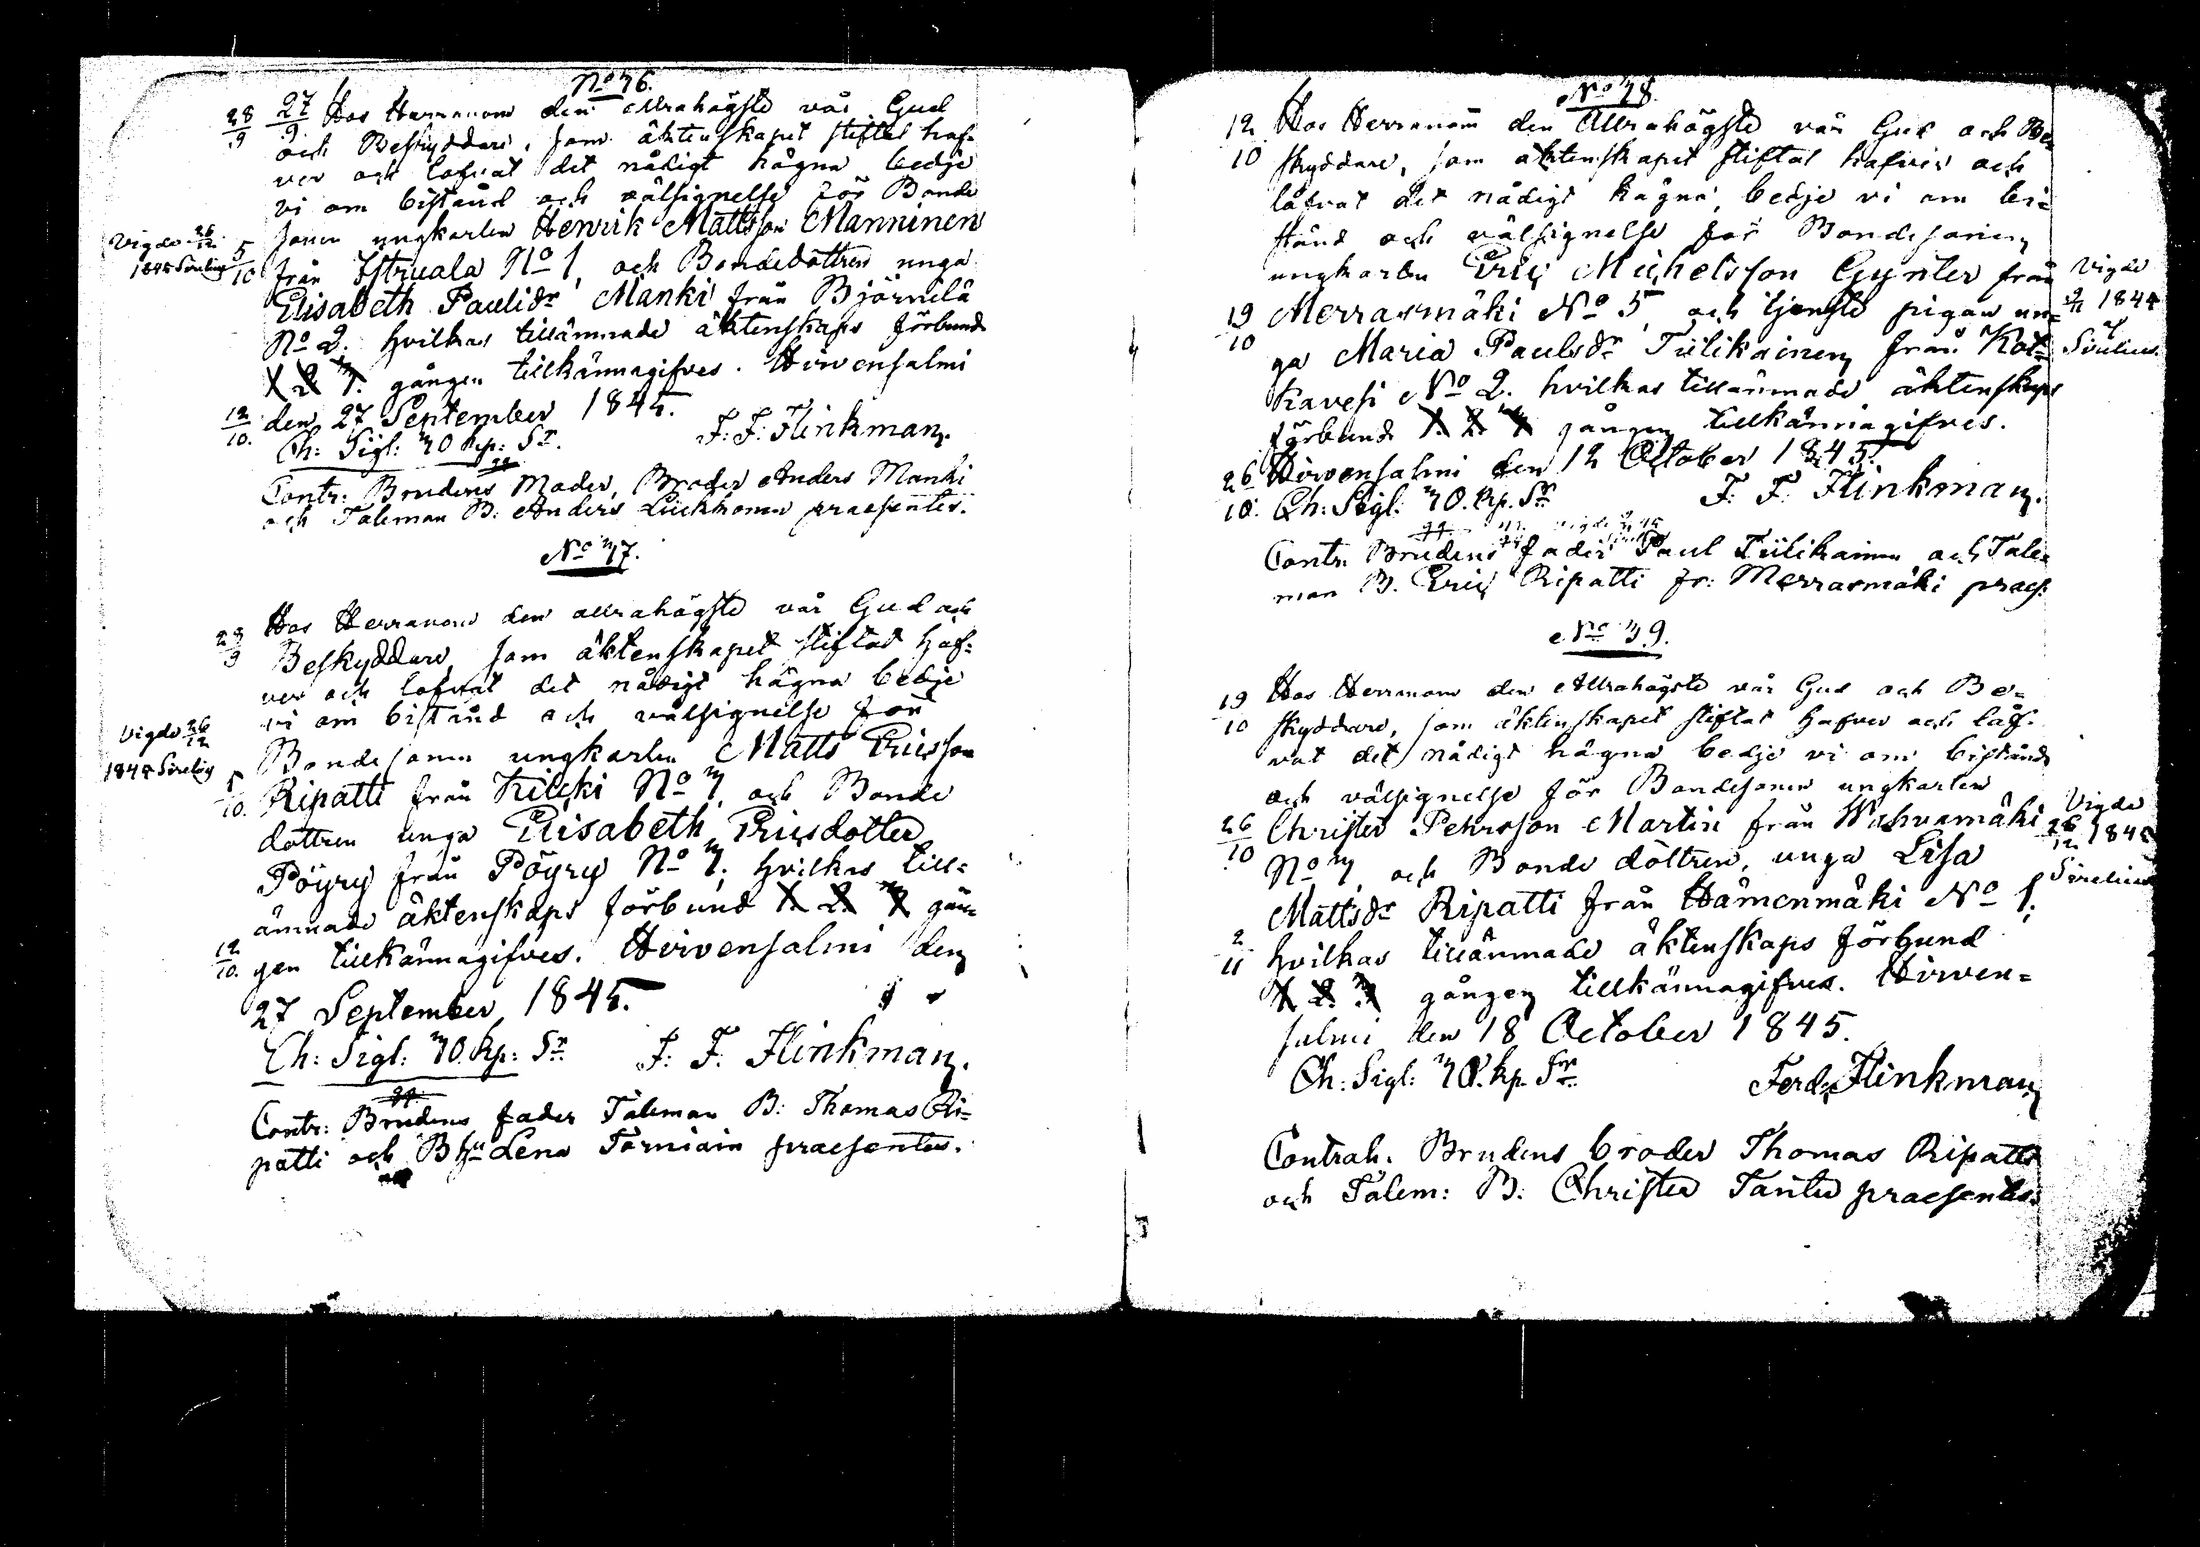 No 36.
28/9 27/9 Hos Herranom den Allrahögste vår Gud
och Beskyddare, som äktenskapet stiftat haf-
ver och lofvat det nådigt hägna bedje
vi om bistånd och välsignelse för Bonde
sonen ungkarlen Henrik Mattsson Manninen
Vigde 26/12
1845 Sirelius
5/10 från Istruala No 1, och Bondedottren unga
Elisabeth Paulidr Manki från Björnilä
No 2. hvilkas tillämnade äktenskaps förbund
1. 2. 3. gången tillkännagifves. Hirvensalmi
12/10. den 27 September 1845.
Ch: Sigl: 30 kp: Sr. F: F: Flinkman.
Contr: Brudens Moder, Broder Anders Manki
och Taleman B: Anders Liukkonen praesentes.
No 37.
28/9 Hos Herranom den allrahögste vår Gud och
Beskyddare, som äktenskapet stiftat haf-
ver och lofvat det nådigt hägna bedje
vi om bistånd och välsignelse för
Vigde 26/12
1845 Sirelius
Bondesonen ungkarlen Matts Ericsson
5/10. Ripatti från Kilkki No 3, och Bonde
dottren unga Elisabeth Ericsdotter
Pöyry från Pöyry No 3; hvilkas till-
ämnade äktenskaps förbund 1. 2. 3. gån-
12/10. gen tillkännagifves. Hirvensalmi den
27 September 1845.
Ch: Sigl: 30. kp: Sr. F: F: Flinkman.
Contr: Brudens fader Taleman B: Thomas Ri-
patti och Lena Torniain praesentes.
No 38.
12/10 Hos Herranom den Allrahögste vår Gud och Be-
skyddare, som äktenskapet stiftat hafver och
låfvat det nådigt hägna, bedje vi om bi-
stånd och välsignelse för Bondesonen
ungkarlen Eric Michelsson Gynter från
Vigde
2/11 1845
Sirelius.
19/10 Merrasmäki No 5 och tjenste pigan un-
ga Maria Paulsdr Tiilikainen från Kot-
kavesi No 2. hvilkas tillämnade äktenskaps
förbund 1. 2. 3. gången tillkännagifves.
26/10. Hirvensalmi den 12 October 1845.
Ch: Sigl: 30. kp. Sr F: F: Flinkman.
Contr. Brudens fader Paul Tiilikainen och Tale-
man B. Eric Ripatti fr: Merrasmäki praes.
No 39.
19/10 Hos Herranom den Allrahögste vår Gud och Be-
skyddare, som äktenskapet stiftat hafver och låf-
vat det nådigt hägna bedje vi om bistånd
och välsignelse för Bondesonen ungkarlen
26/10 Christer Pehrsson Martin från Wahvamäki
Vigde
26/12 1845
Sirelius
No 3, och Bonde döttren, unga Lisa
Mattsdr Ripatti från Hämenmäki No 1;
2/11 hvilkas tillämnade äktenskaps förbund
1. 2. 3. gången tillkännagifves. Hirven-
salmi den 18 October 1845.
Ch: Sigl: 30. kp. Sr. Ferd. Flinkman
Contrah. Brudens broder Thomas Ripatti
och Talem: B: Christer Tanttu praesentes.